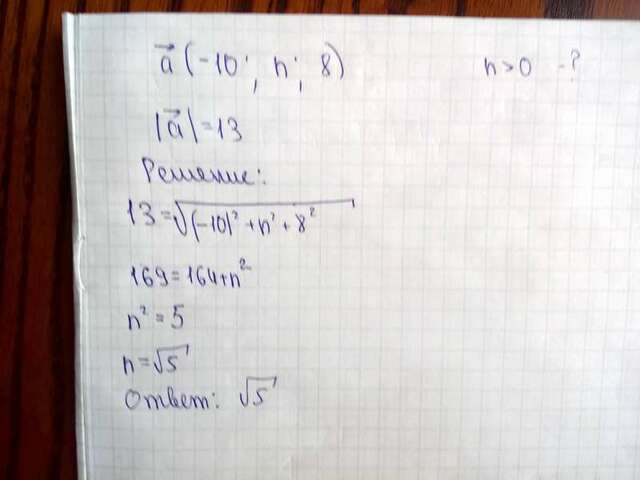 a⃗ (-10; n; 8) n>0 -?
|a⃗|=13
Решение:
13=√(-10)²+n²+8²
169=164+n²
n²=5
n=√5
Ответ: √5